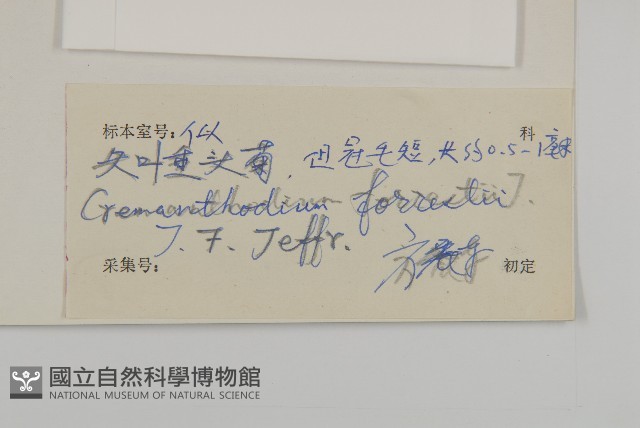 标本室号: 似 科
叶垂头菊, 但冠毛短, 长约0.5-1毫米
Cremanthodium forrestii J.
J. F. Jeffr.
采集号: 方 初定
國立自然科學博物館
NATIONAL MUSEUM OF NATURAL SCIENCE